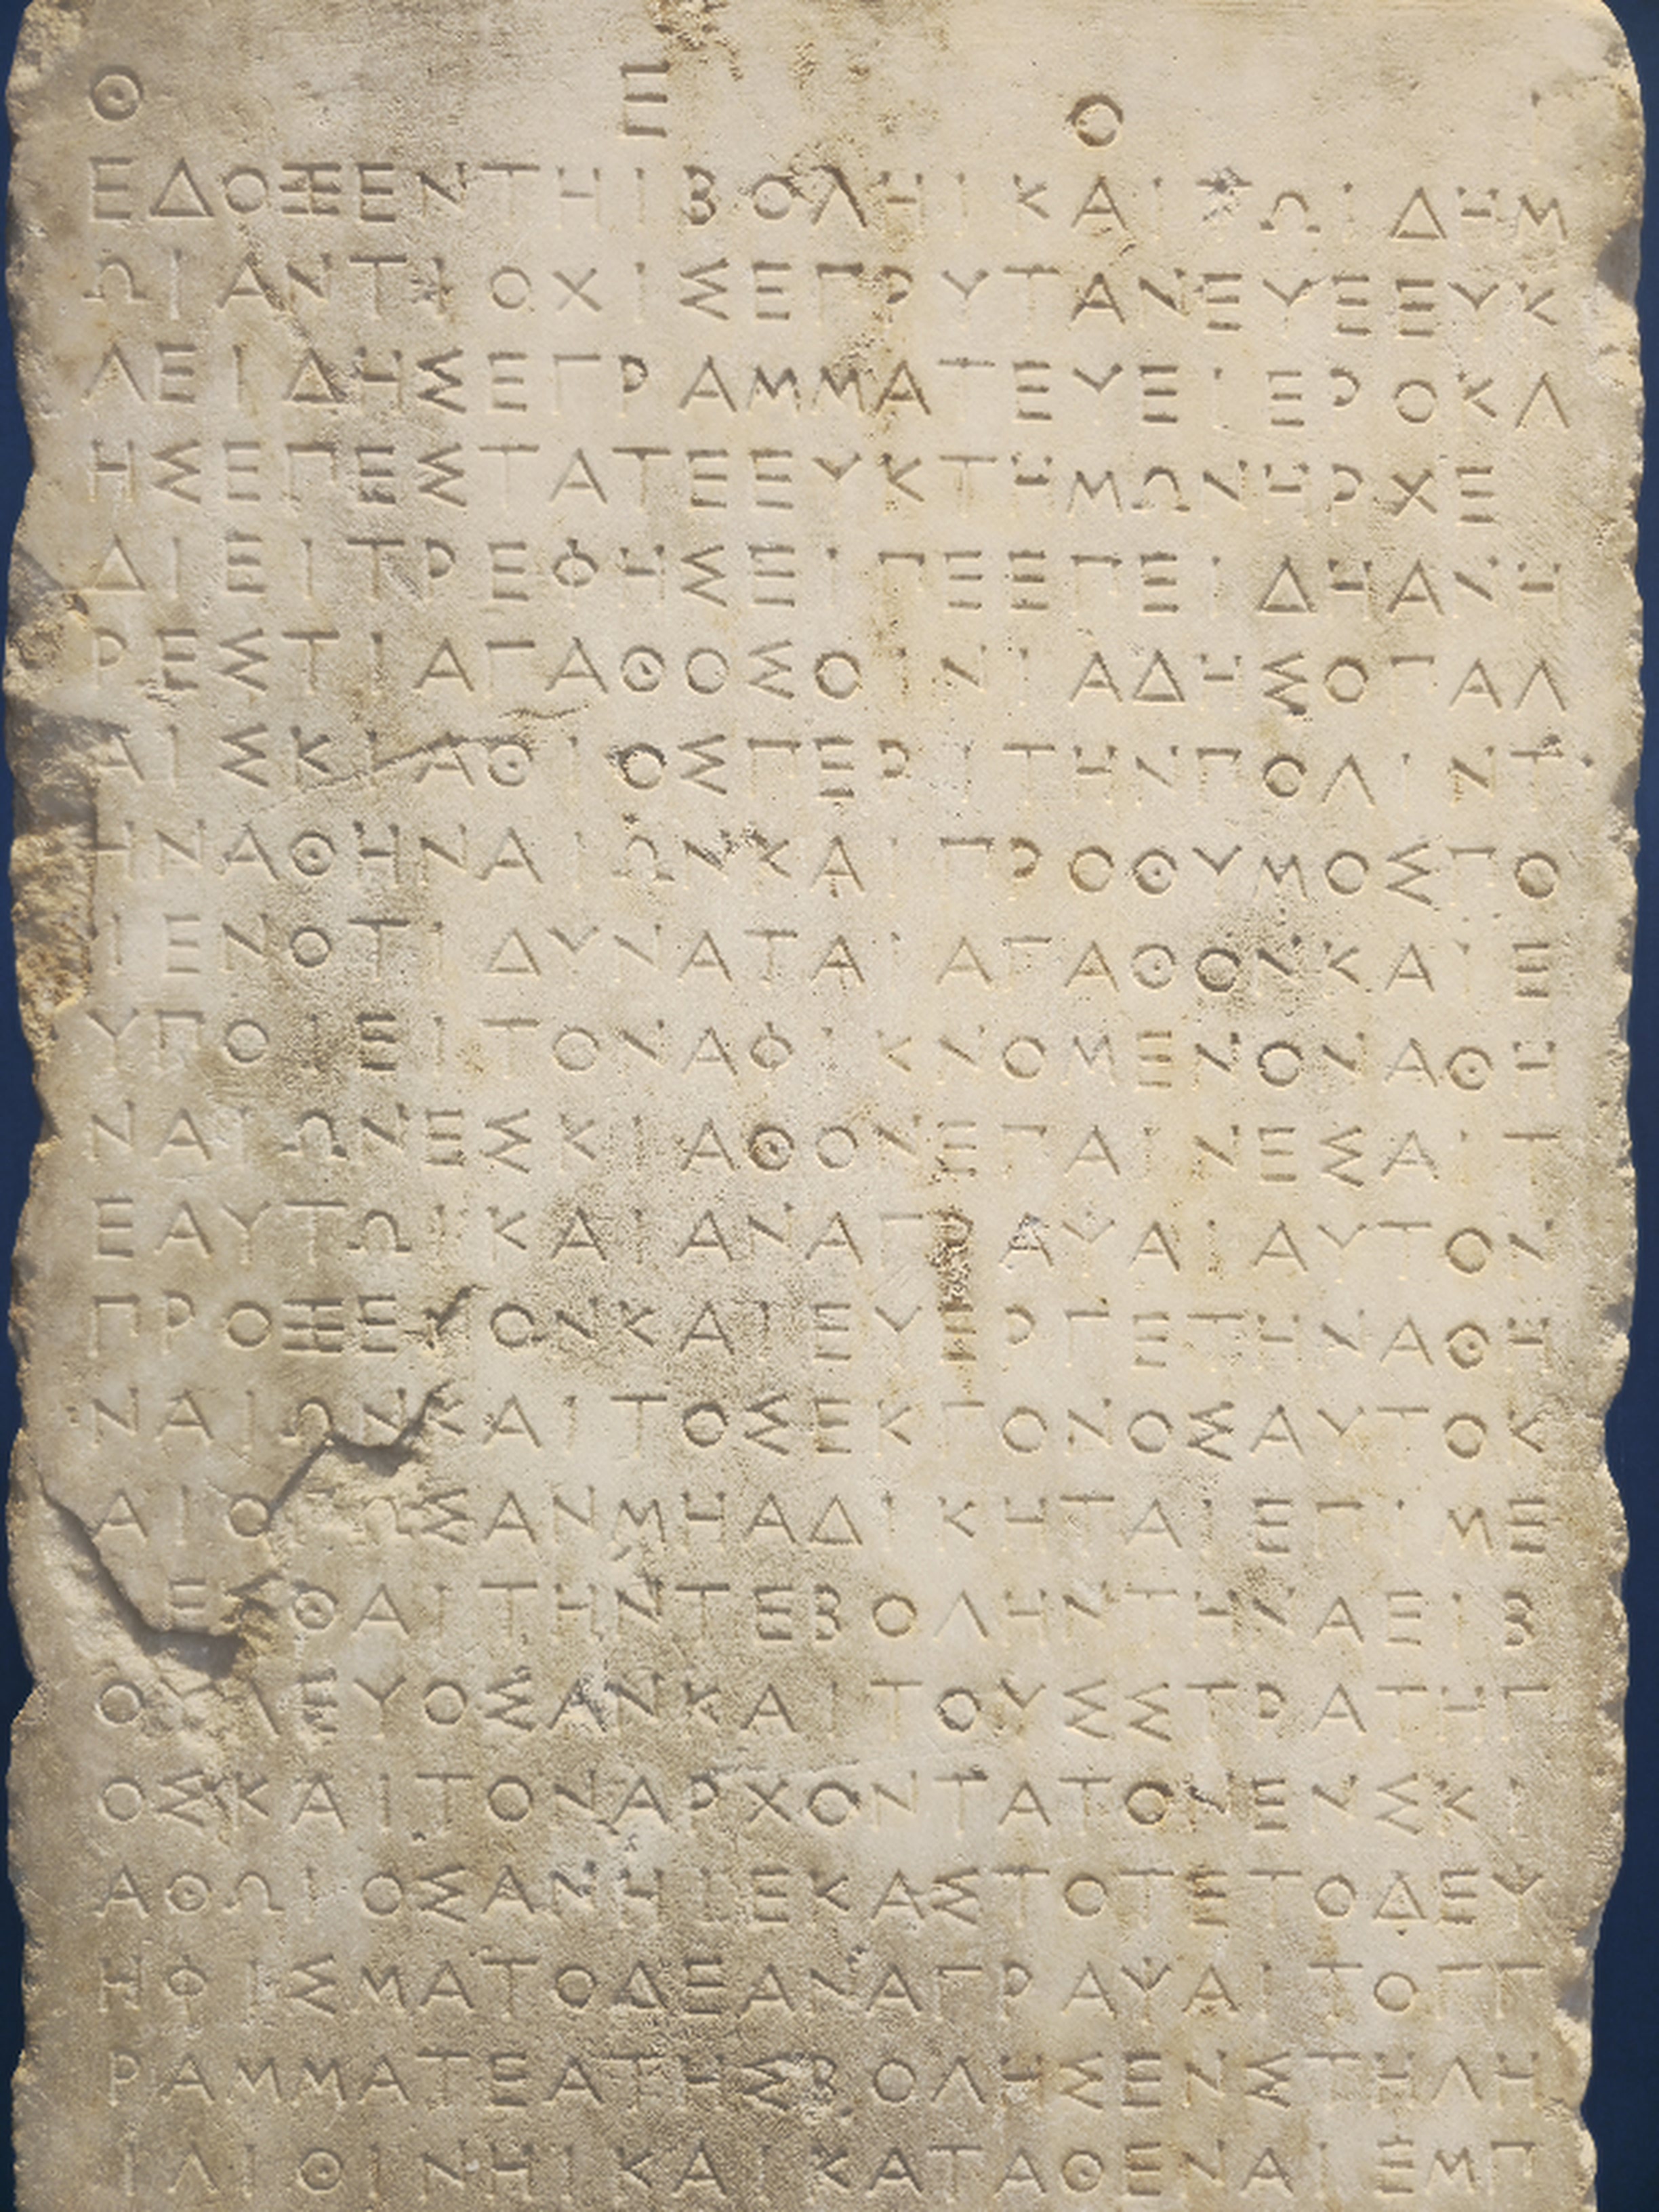 Θ Ε Ο
ΕΔΟΞΕΝΤΗΙΒΟΛΗΙΚΑΙΤΩΙΔΗΜ
ΩΙΑΝΤΙΟΧΙΣΕΠΡΥΤΑΝΕΥΕΕΥΚ
ΛΕΙΔΗΣΕΓΡΑΜΜΑΤΕΥΕΙΕΡΟΚΛ
ΗΣΕΠΕΣΤΑΤΕΕΥΚΤΗΜΩΝΗΡΧΕ
ΔΙΕΙΤΡΕΦΗΣΕΙΠΕΕΠΕΙΔΗΑΝΗ
ΡΕΣΤΙΑΓΑΘΟΣΟΙΝΙΑΔΗΣΟΠΑΛ
ΑΙΣΚΙΑΘΙΟΣΠΕΡΙΤΗΝΠΟΛΙΝΤ
ΗΝΑΘΗΝΑΙΩΝΚΑΙΠΡΟΘΥΜΟΣΠΟ
ΙΕΝΟΤΙΔΥΝΑΤΑΙΑΓΑΘΟΝΚΑΙΕ
ΥΠΟΙΕΙΤΟΝΑΦΙΚΝΟΜΕΝΟΝΑΘΗ
ΝΑΙΩΝΕΣΚΙΑΘΟΝΕΠΑΙΝΕΣΑΙΤ
ΕΑΥΤΩΙΚΑΙΑΝΑΓΡΑΨΑΙΑΥΤΟΝ
ΠΡΟΞΕΝΟΝΚΑΙΕΥΕΡΓΕΤΗΝΑΘΗ
ΝΑΙΩΝΚΑΙΤΟΣΕΚΓΟΝΟΣΑΥΤΟΚ
ΑΙΟΠΩΣΑΝΜΗΑΔΙΚΗΤΑΙΕΠΙΜΕ
ΕΣΘΑΙΤΗΝΤΕΒΟΛΗΝΤΗΝΑΕΙΒ
ΟΥΛΕΥΟΣΑΝΚΑΙΤΟΥΣΣΤΡΑΤΗΓ
ΟΣΚΑΙΤΟΝΑΡΧΟΝΤΑΤΟΝΕΝΣΚΙ
ΑΘΩΙΟΣΑΝΗΙΕΚΑΣΤΟΤΕΤΟΔΕΨ
ΗΦΙΣΜΑΤΟΔΕΑΝΑΓΡΑΨΑΙΤΟΓΓ
ΡΑΜΜΑΤΕΑΤΗΣΒΟΛΗΣΕΝΣΤΗΛΗ
ΙΛΙΘΙΝΗΙΚΑΙΚΑΤΑΘΕΝΑΙΕΜΠ